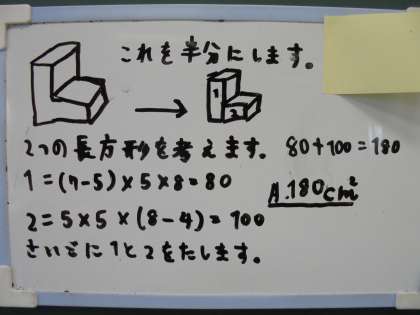 これを半分にします。
1
2
2つの長方形を考えます。 80+100=180
1=(7-5)×5×8=80
A.180cm²
2=5×5×(8-4)=100
さいごに1と2をたします。